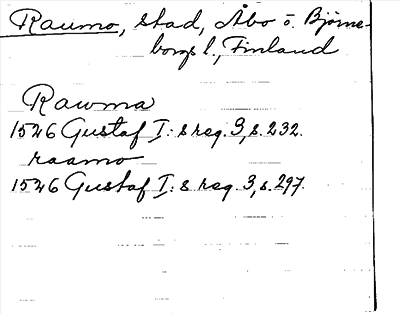 Raumo, stad, Åbo o. Björne-
borgs l., Finland
Rawma
1546 Gustaf I: s reg. 3, s. 232.
raamo
1546 Gustaf I: s reg. 3, s. 297.